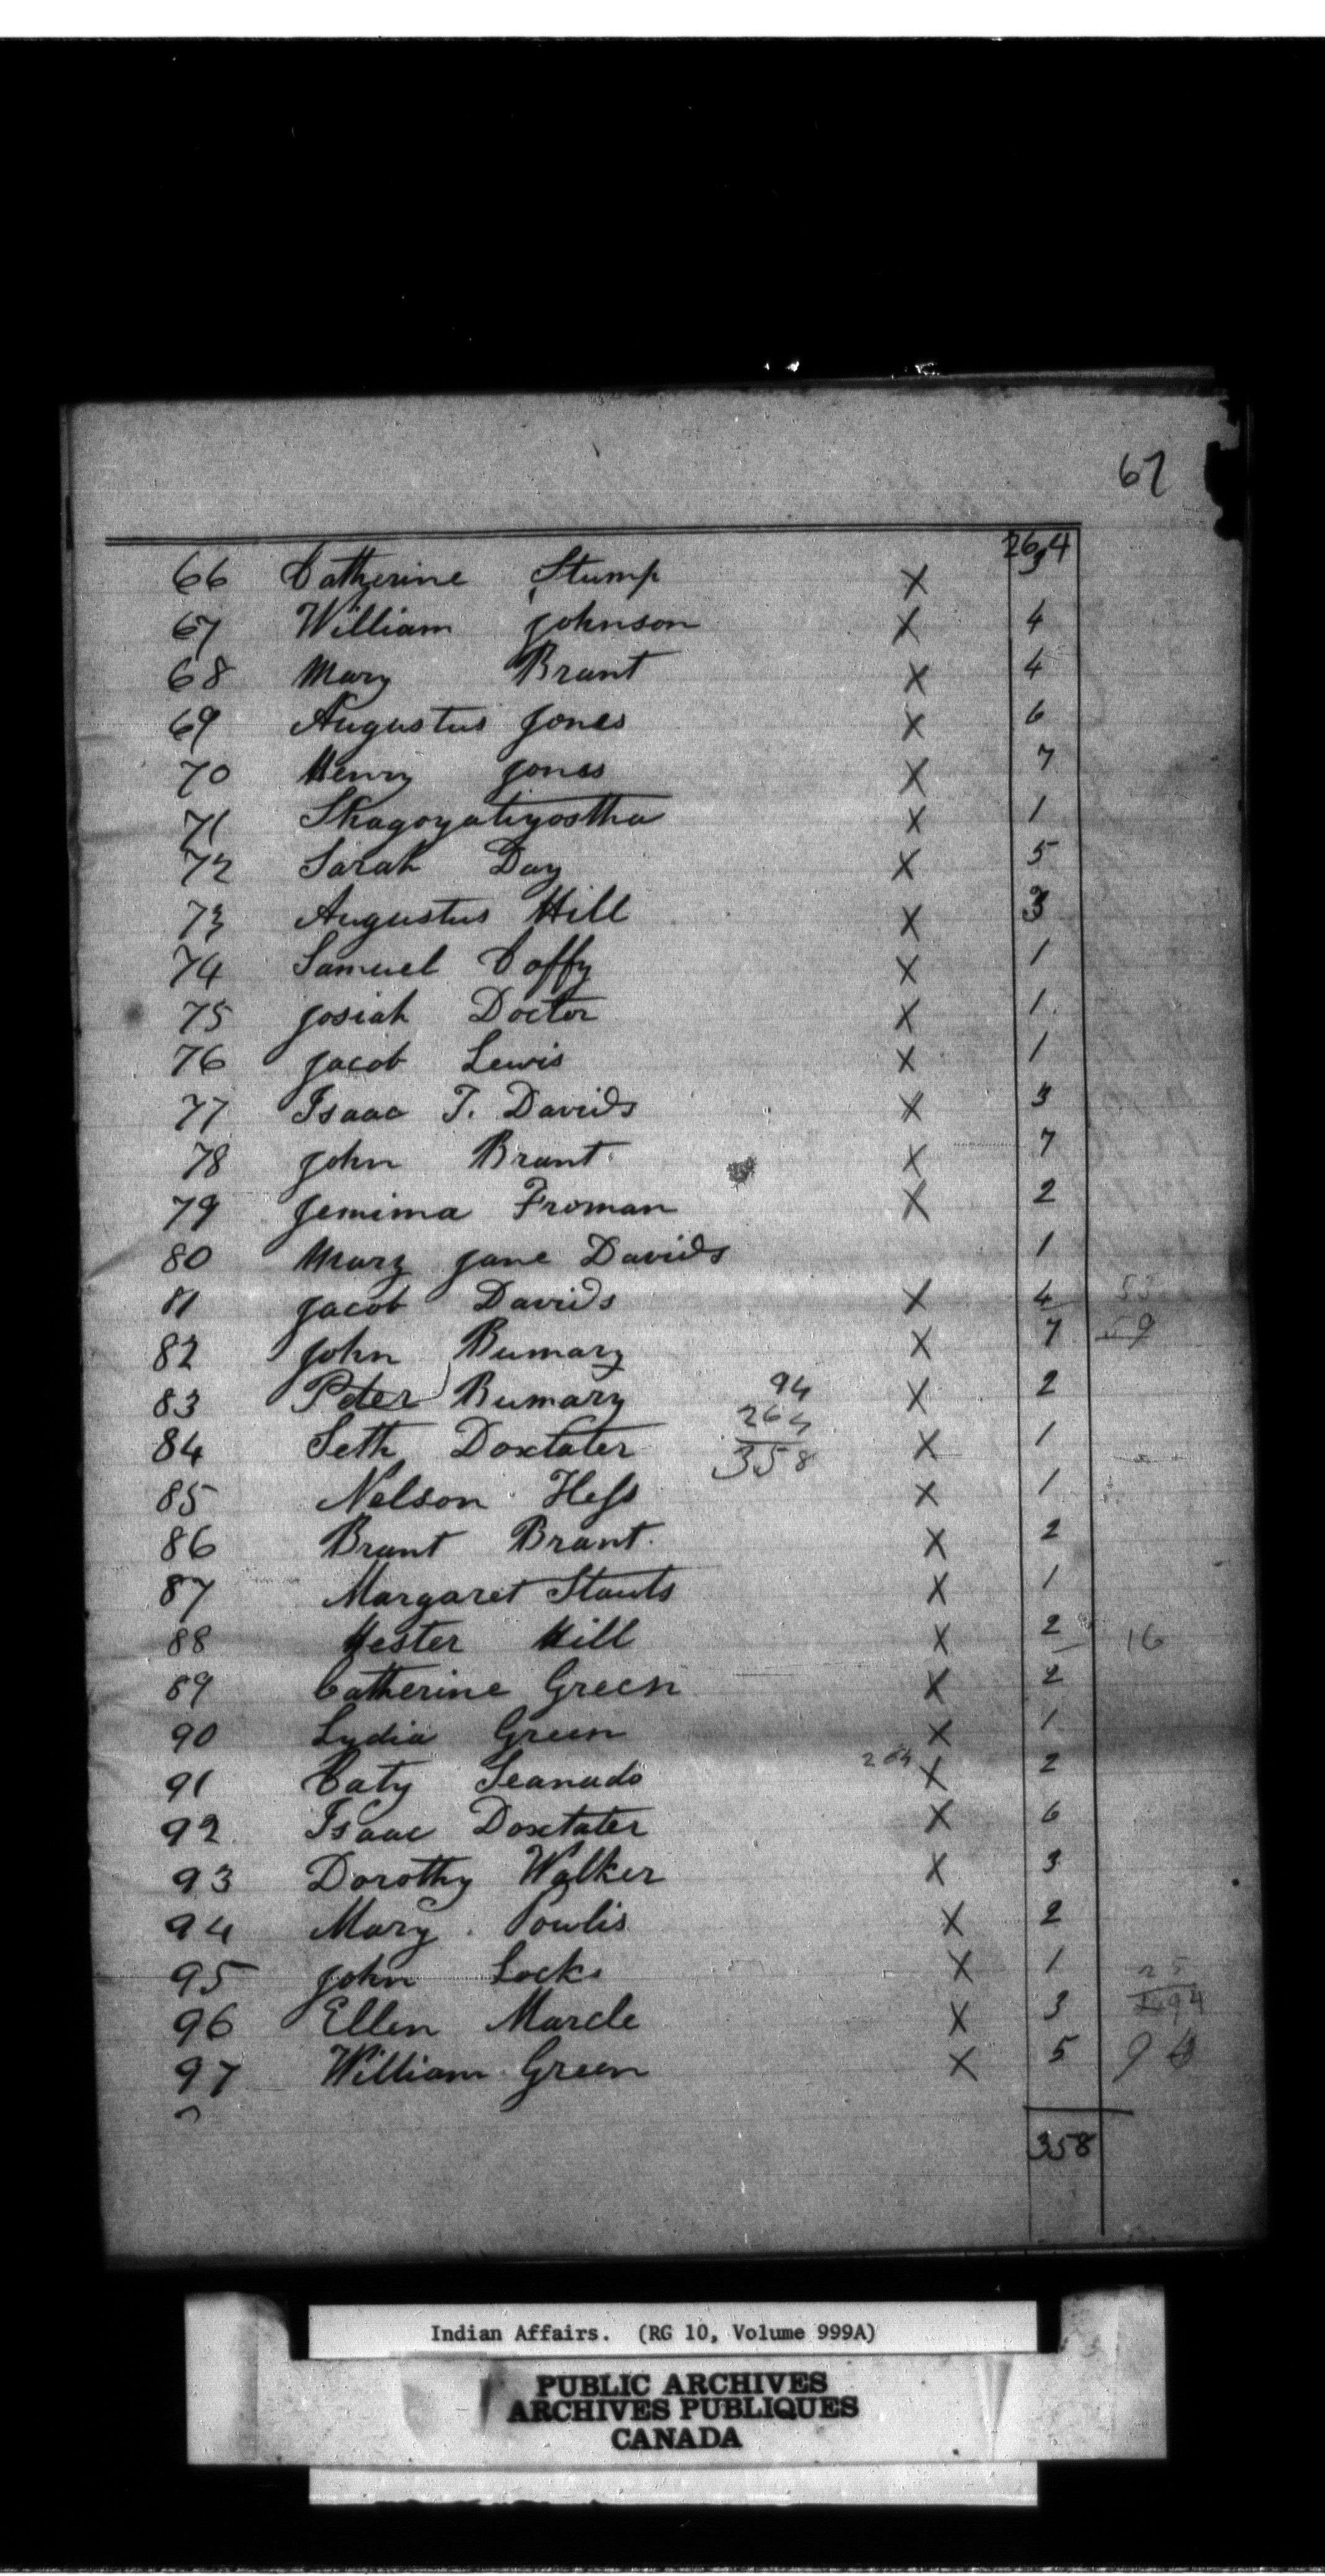 67
264
66 Catherine Stump X 3
67 William Johnson X 4
68 Mary Brant X 4
69 Augustus Jones X 6
70 Henry Jones X 7
71 Skagoyatiyostha X 1
72 Sarah Day X 5
73 Augustus Hill X 3
74 Samuel Coffy X 1
75 Josiah Doctor X 1
76 Jacob Lewis X 1
77 Isaac T. Davids X 3
78 John Brant X 7
79 Jemima Froman X 2
80 Mary Jane Davids 1
81 Jacob Davids X 4 53
82 John Bumary X 7 59
83 Peter Bumary 94 X 2
264
84 Seth Doxtater 358 X 1
85 Nelson Hess X 1
86 Brant Brant X 2
87 Margaret Stauts X 1
88 Hester Hill X 2 16
89 Catherine Green X 2
90 Lydia Green X 1
91 Caty Seanado 264 X 2
92 Isaac Doxtater X 6
93 Dorothy Walker X 3
94 Mary Powlis X 2
95 John Locks X 1 25
96 Ellen Marcle X 3 94
97 William Green X 5
358
Indian Affairs. (RG 10, Volume 999A)
PUBLIC ARCHIVES
ARCHIVES PUBLIQUES
CANADA